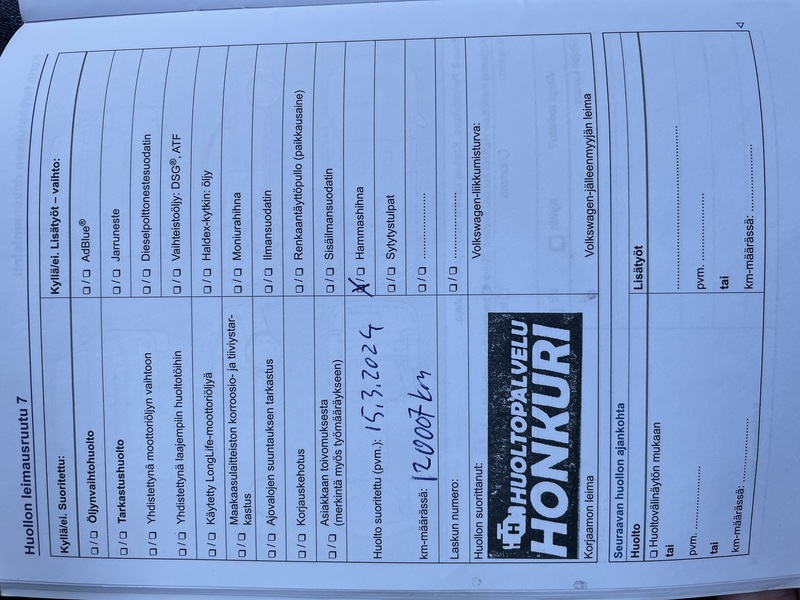 Huollon leimausruutu 7
Kyllä/ei. Suoritettu:
☐ / ☐ Öljynvaihtohuolto
☐ / ☐ Tarkastushuolto
☐ / ☐ Yhdistettynä moottoriöljyn vaihtoon
☐ / ☐ Yhdistettynä laajempiin huoltotöihin
☐ / ☐ Käytetty LongLife-moottoriöljyä
☐ / ☐ Maakaasulaitteiston korroosio- ja tiiviystar-
kastus
☐ / ☐ Ajovalojen suuntauksen tarkastus
☐ / ☐ Korjauskehotus
☐ / ☐ Asiakkaan toivomuksesta
(merkintä myös työmääräykseen)
Huolto suoritettu (pvm.): 15.3.2024
km-määrässä: 120007 km
Laskun numero:
Huollon suorittanut:
HUOLTOPALVELU
HONKURI
Korjaamon leima
Kyllä/ei. Lisätyöt – vaihto:
☐ / ☐ AdBlue®
☐ / ☐ Jarruneste
☐ / ☐ Dieselpolttonestesuodatin
☐ / ☐ Vaihteistoöljy: DSG®, ATF
☐ / ☐ Haldex-kytkin: öljy
☐ / ☐ Moniurahihna
☐ / ☐ Ilmansuodatin
☐ / ☐ Renkaantäyttöpullo (paikkausaine)
☐ / ☐ Sisäilmansuodatin
☒ / ☐ Hammashihna
☐ / ☐ Sytytystulpat
☐ / ☐ ....................
☐ / ☐ ....................
Volkswagen-liikkumisturva:
Volkswagen-jälleenmyyjän leima
Seuraavan huollon ajankohta
Huolto
☐ Huoltovälinäytön mukaan
tai
pvm. ....................
tai
km-määrässä: ....................
Lisätyöt
....................
pvm. ....................
tai
km-määrässä: ....................